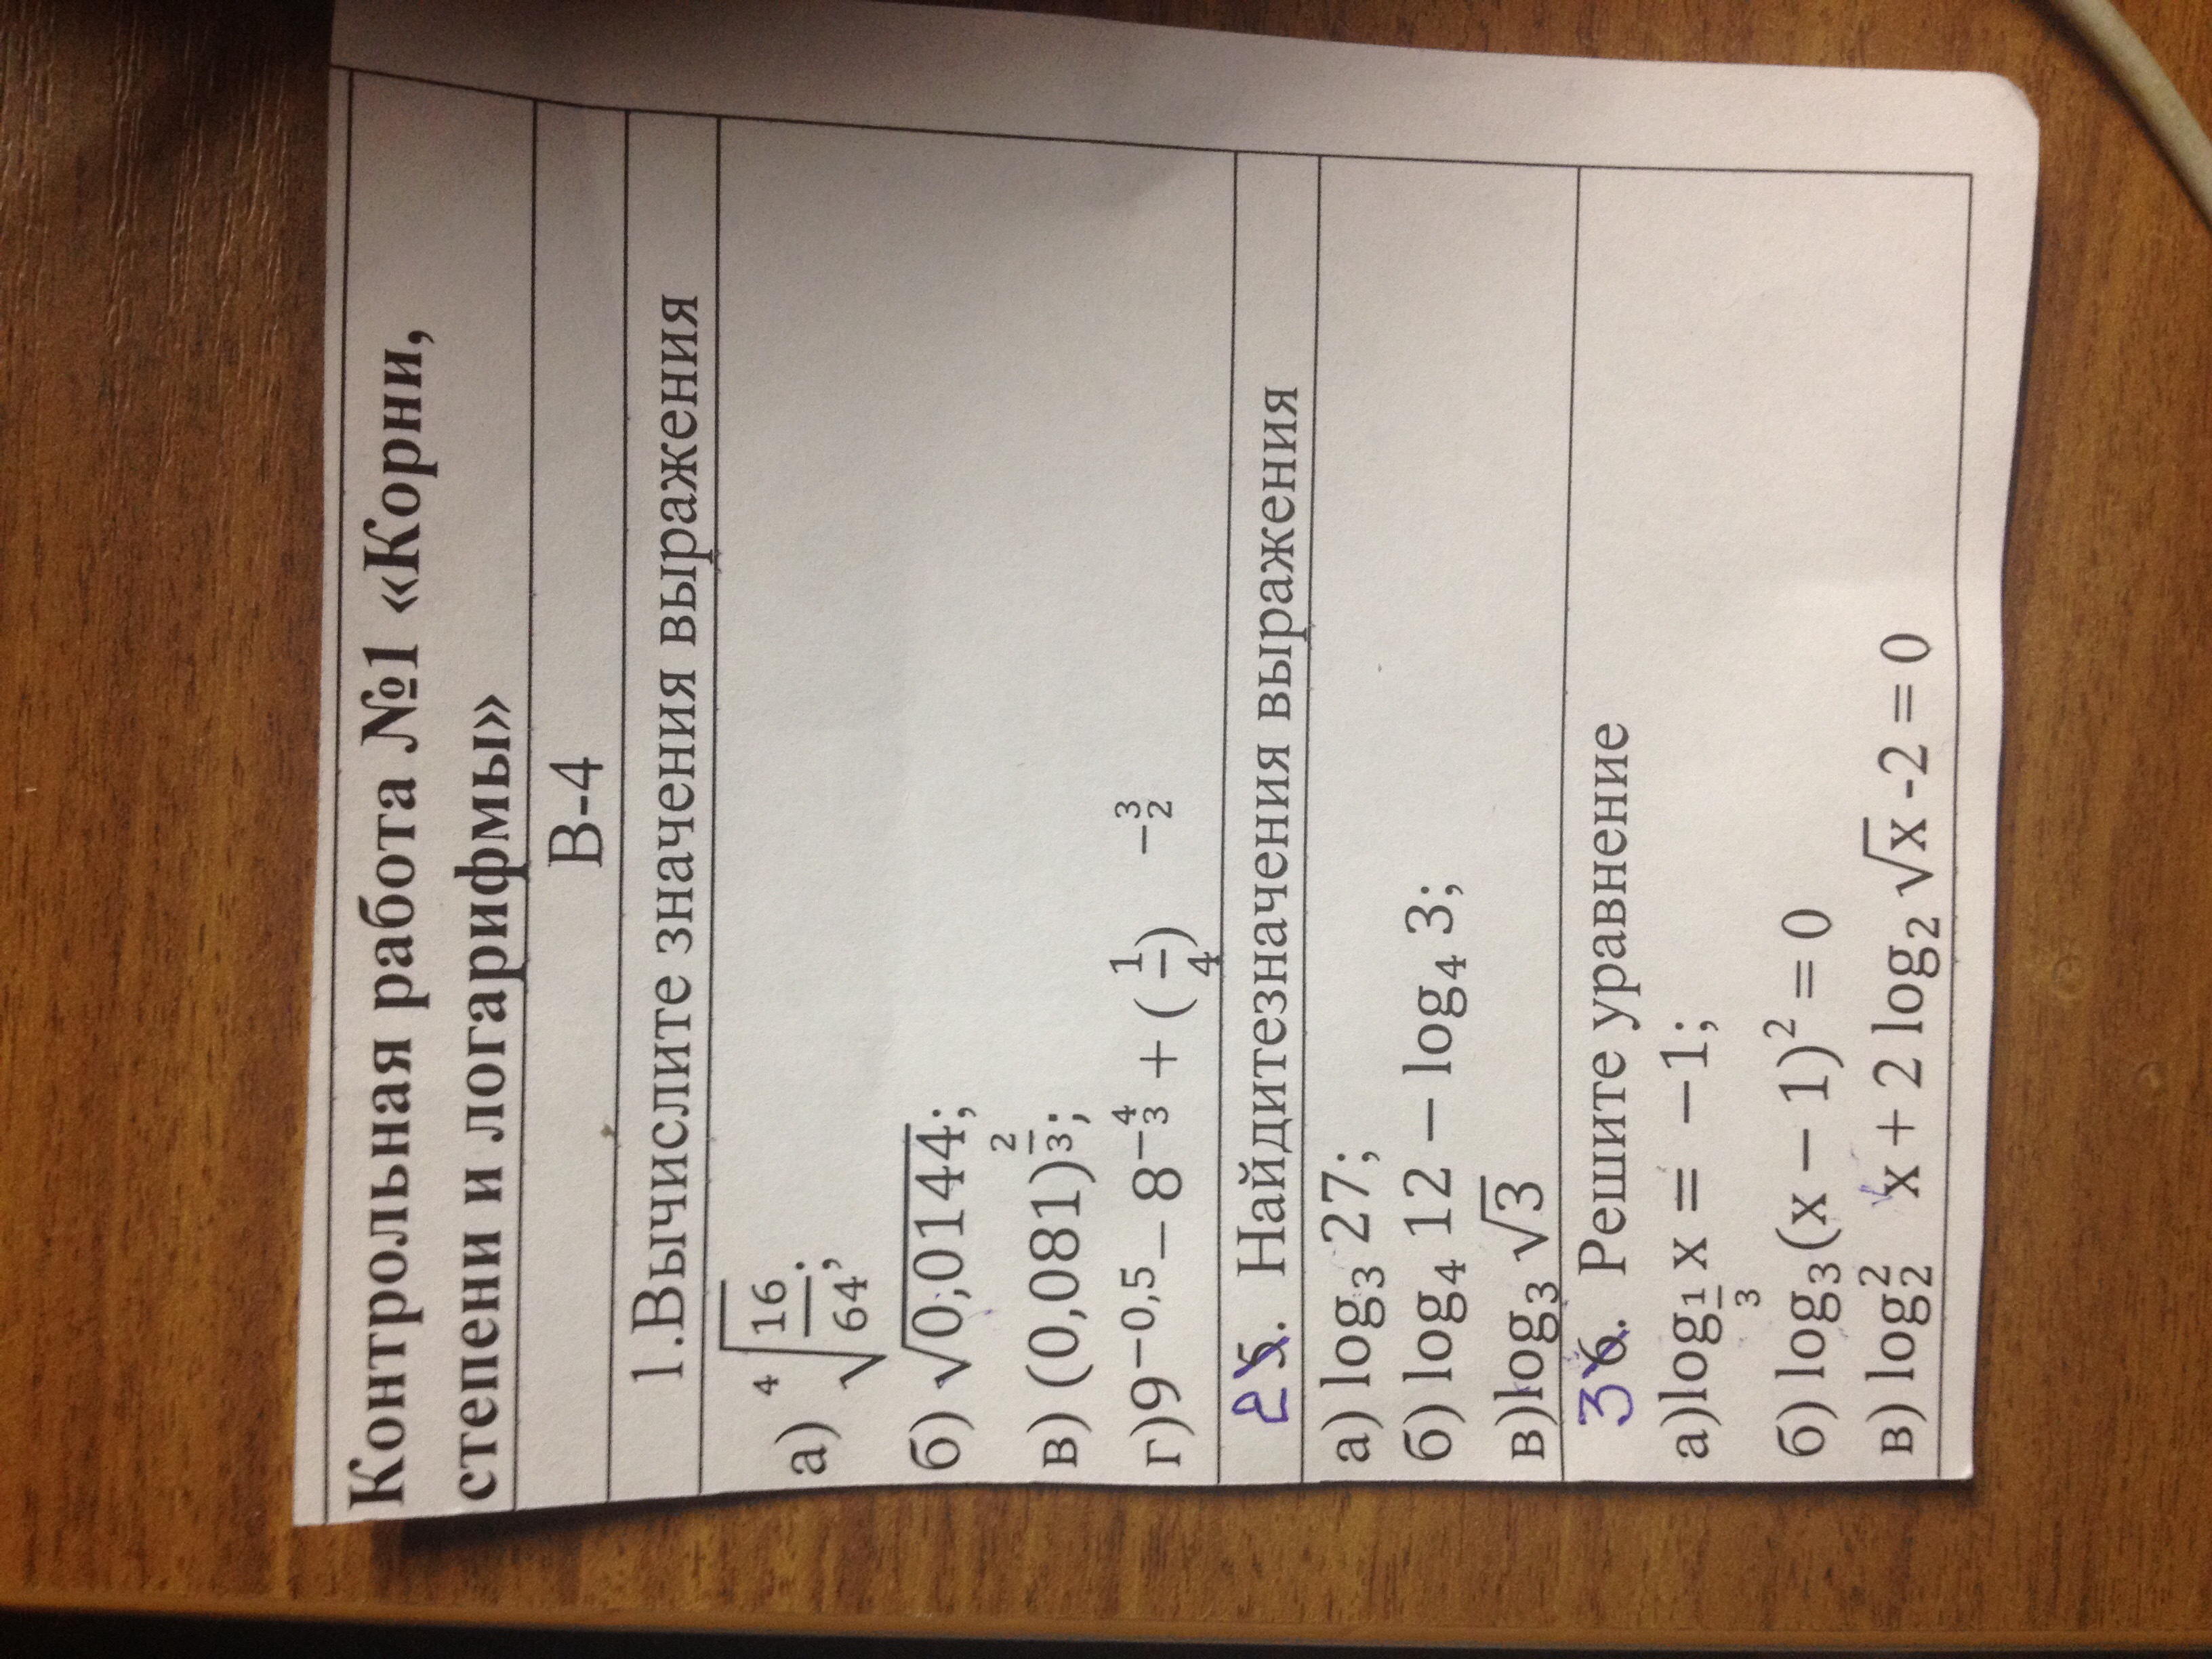 Контрольная работа №1 «Корни,
степени и логарифмы»
В-4
1.Вычислите значения выражения
а) ⁴√(16/64);
б) √0,0144;
в) (0,081)^(2/3);
г)9^(−0,5) − 8^(−4/3) + (1/4) ^(−3/2)
25. Найдитезначения выражения
а) log₃ 27;
б) log₄ 12 − log₄ 3;
в)log₃ √3
36. Решите уравнение
а)log_(1/3) x = −1;
б) log₃(x − 1)² = 0
в) log₂² x + 2 log₂ √x -2 = 0